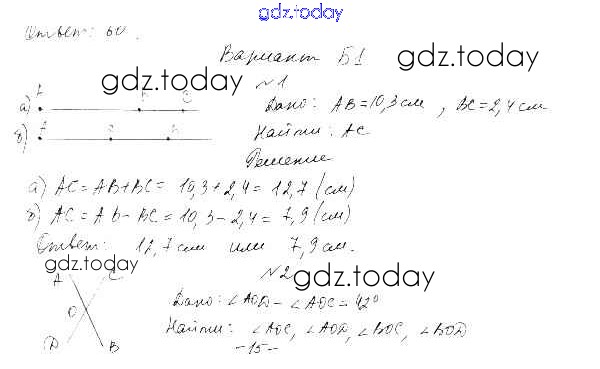 gdz.today
Ответ: 60.
Вариант Б1
gdz.today gdz.today
№1
а) A B C
Дано: AB=10,3 см, BC=2,4 см
б) A C B
Найти: AC
Решение
а) AC=AB+BC=10,3+2,4=12,7 (см)
б) AC=AB-BC=10,3-2,4=7,9 (см)
Ответ: 12,7 см или 7,9 см.
gdz.today
№2
gdz.today
A C
Дано: ∠AOD - ∠AOC = 42°
O
Найти: ∠AOC, ∠AOD, ∠BOC, ∠BOD
D B
-15-